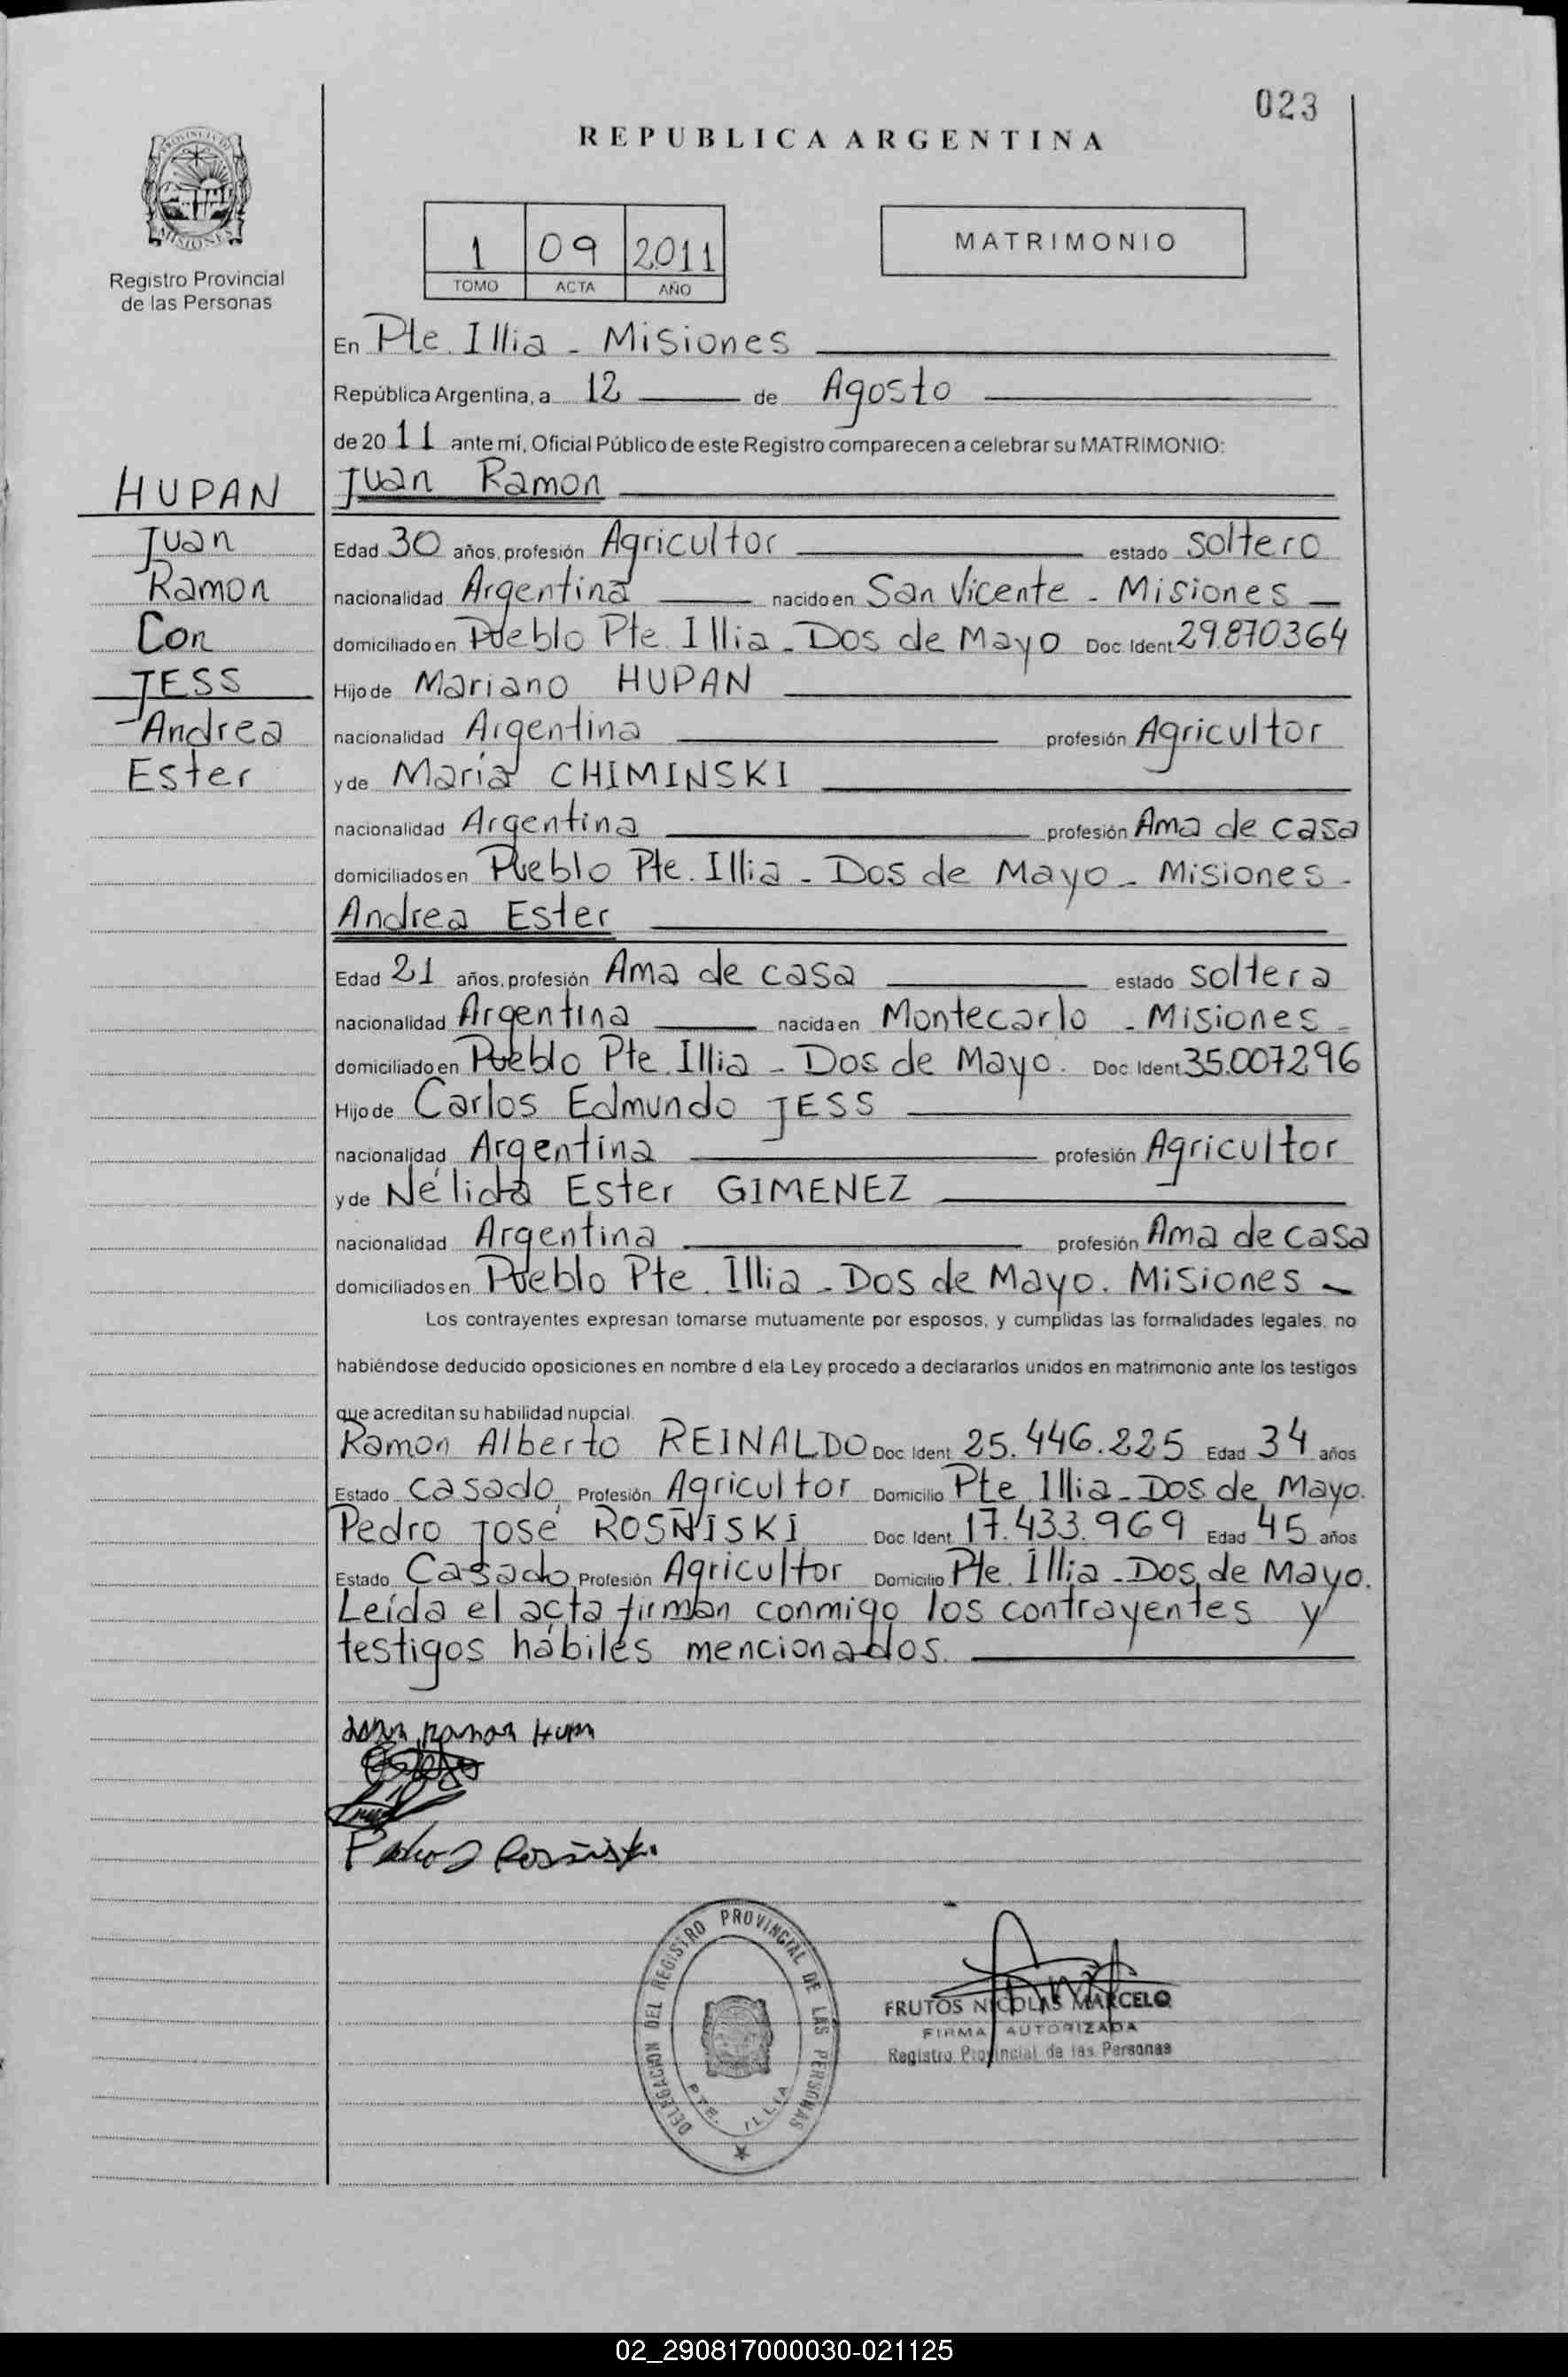 023
REPUBLICA ARGENTINA
PROVINCIA DE
MISIONES
Registro Provincial
de las Personas
1 09 2011
TOMO ACTA AÑO
MATRIMONIO
En Pte. Illia - Misiones
República Argentina, a 12 de Agosto
de 2011 ante mí, Oficial Público de este Registro comparecen a celebrar su MATRIMONIO:
HUPAN
Juan
Ramon
Con
JESS
Andrea
Ester
Juan Ramon
Edad 30 años, profesión Agricultor estado soltero
nacionalidad Argentina nacido en San Vicente - Misiones
domiciliado en Pueblo Pte. Illia - Dos de Mayo Doc. Ident. 29.870.364
Hijo de Mariano HUPAN
nacionalidad Argentina profesión Agricultor
y de María CHIMINSKI
nacionalidad Argentina profesión Ama de casa
domiciliados en Pueblo Pte. Illia - Dos de Mayo - Misiones -
Andrea Ester
Edad 21 años, profesión Ama de casa estado soltera
nacionalidad Argentina nacida en Montecarlo - Misiones -
domiciliado en Pueblo Pte. Illia - Dos de Mayo. Doc. Ident. 35.007.296
Hijo de Carlos Edmundo JESS
nacionalidad Argentina profesión Agricultor
y de Nélida Ester GIMENEZ
nacionalidad Argentina profesión Ama de casa
domiciliados en Pueblo Pte. Illia - Dos de Mayo. Misiones -
Los contrayentes expresan tomarse mutuamente por esposos, y cumplidas las formalidades legales, no
habiéndose deducido oposiciones en nombre d ela Ley procedo a declararlos unidos en matrimonio ante los testigos
que acreditan su habilidad nupcial.
Ramon Alberto REINALDO Doc. Ident. 25.446.225 Edad 34 años
Estado casado, Profesión Agricultor Domicilio Pte. Illia - Dos de Mayo.
Pedro José ROSÑISKI Doc. Ident. 17.433.969 Edad 45 años
Estado Casado, Profesión Agricultor Domicilio Pte. Illia - Dos de Mayo.
Leída el acta firman conmigo los contrayentes y
testigos hábiles mencionados.
Juan Ramon Hupan
Pedro J Rosñiski
DELEGACION DEL REGISTRO PROVINCIAL DE LAS PERSONAS
PTE. ILLIA
FRUTOS NICOLAS MARCELO
FIRMA AUTORIZADA
Registro Provincial de las Personas
02_290817000030-021125